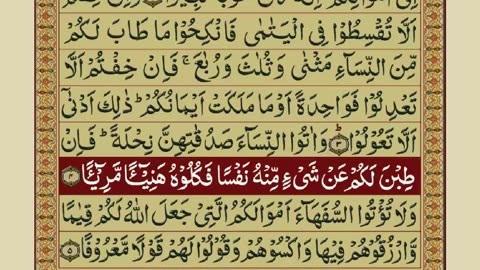 اَلَّا تُقْسِطُوْا فِی الْیَتٰمٰی فَانْكِحُوْا مَا طَابَ لَكُمْ
مِّنَ النِّسَآءِ مَثْنٰی وَ ثُلٰثَ وَ رُبٰعَ ۚ فَاِنْ خِفْتُمْ اَلَّا
تَعْدِلُوْا فَوَاحِدَةً اَوْ مَا مَلَكَتْ اَیْمَانُكُمْ ؕ ذٰلِكَ اَدْنٰۤی
اَلَّا تَعُوْلُوْا ؕ﴿۳﴾ وَ اٰتُوا النِّسَآءَ صَدُقٰتِهِنَّ نِحْلَةً ؕ فَاِنْ
طِبْنَ لَكُمْ عَنْ شَیْءٍ مِّنْهُ نَفْسًا فَكُلُوْهُ هَنِیْٓــٴًـا مَّرِیْٓــٴًـا ﴿۴﴾
وَ لَا تُؤْتُوا السُّفَهَآءَ اَمْوَالَكُمُ الَّتِیْ جَعَلَ اللّٰهُ لَكُمْ قِیٰمًا
وَّ ارْزُقُوْهُمْ فِیْهَا وَ اكْسُوْهُمْ وَ قُوْلُوْا لَهُمْ قَوْلًا مَّعْرُوْفًا ﴿۵﴾